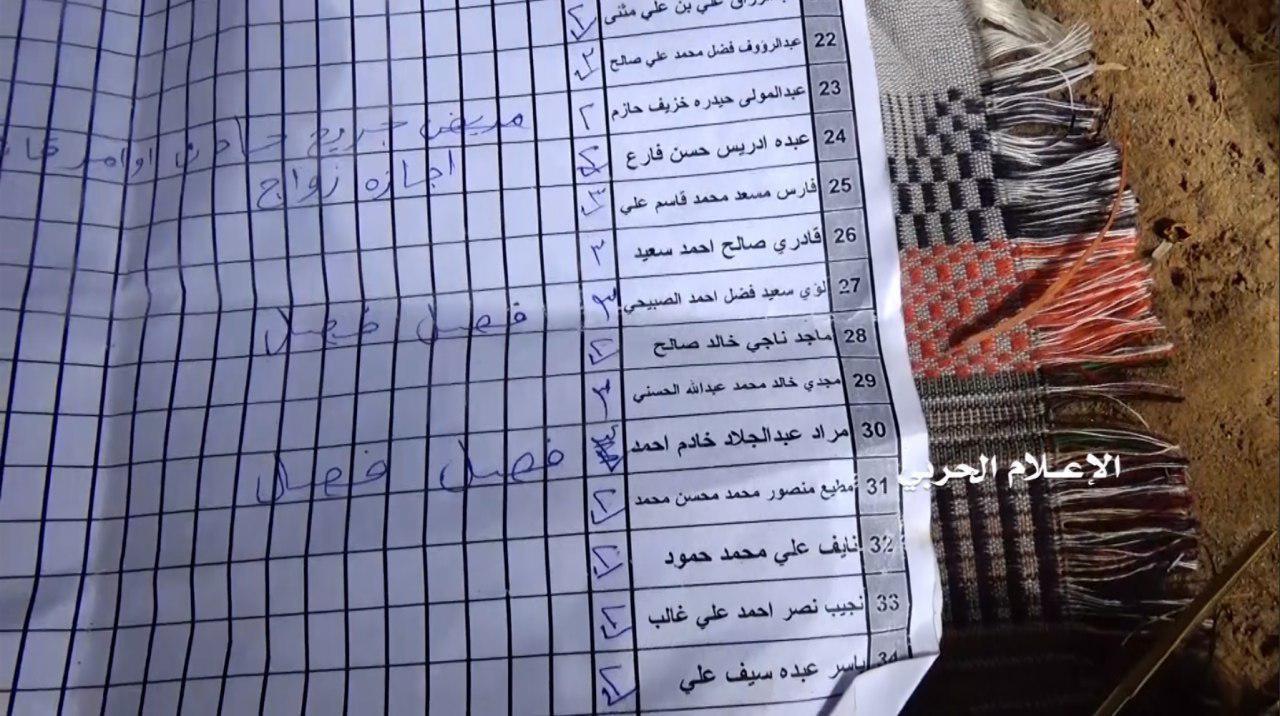 علي بن علي مثنى
22 عبدالرؤوف فضل محمد علي صالح ٢
23 عبدالمولى حيدره خزيف حازم ٢ مريض جريح
24 عبده ادريس حسن فارع ٢ اجازه زواج
25 فارس مسعد محمد قاسم علي ٣
26 قادري صالح احمد سعيد ٣
27 لؤي سعيد فضل احمد الصبيحي فصل فصل
28 ماجد ناجي خالد صالح ٢
29 مجدي خالد محمد عبدالله الحسني
30 مراد عبدالجلاد خادم احمد فصل فصل
31 مطيع منصور محمد محسن محمد ٢
32 نايف علي محمد حمود ٢
33 نجيب نصر احمد علي غالب ٢
34 ياسر عبده سيف علي ٢
الإعلام الحربي